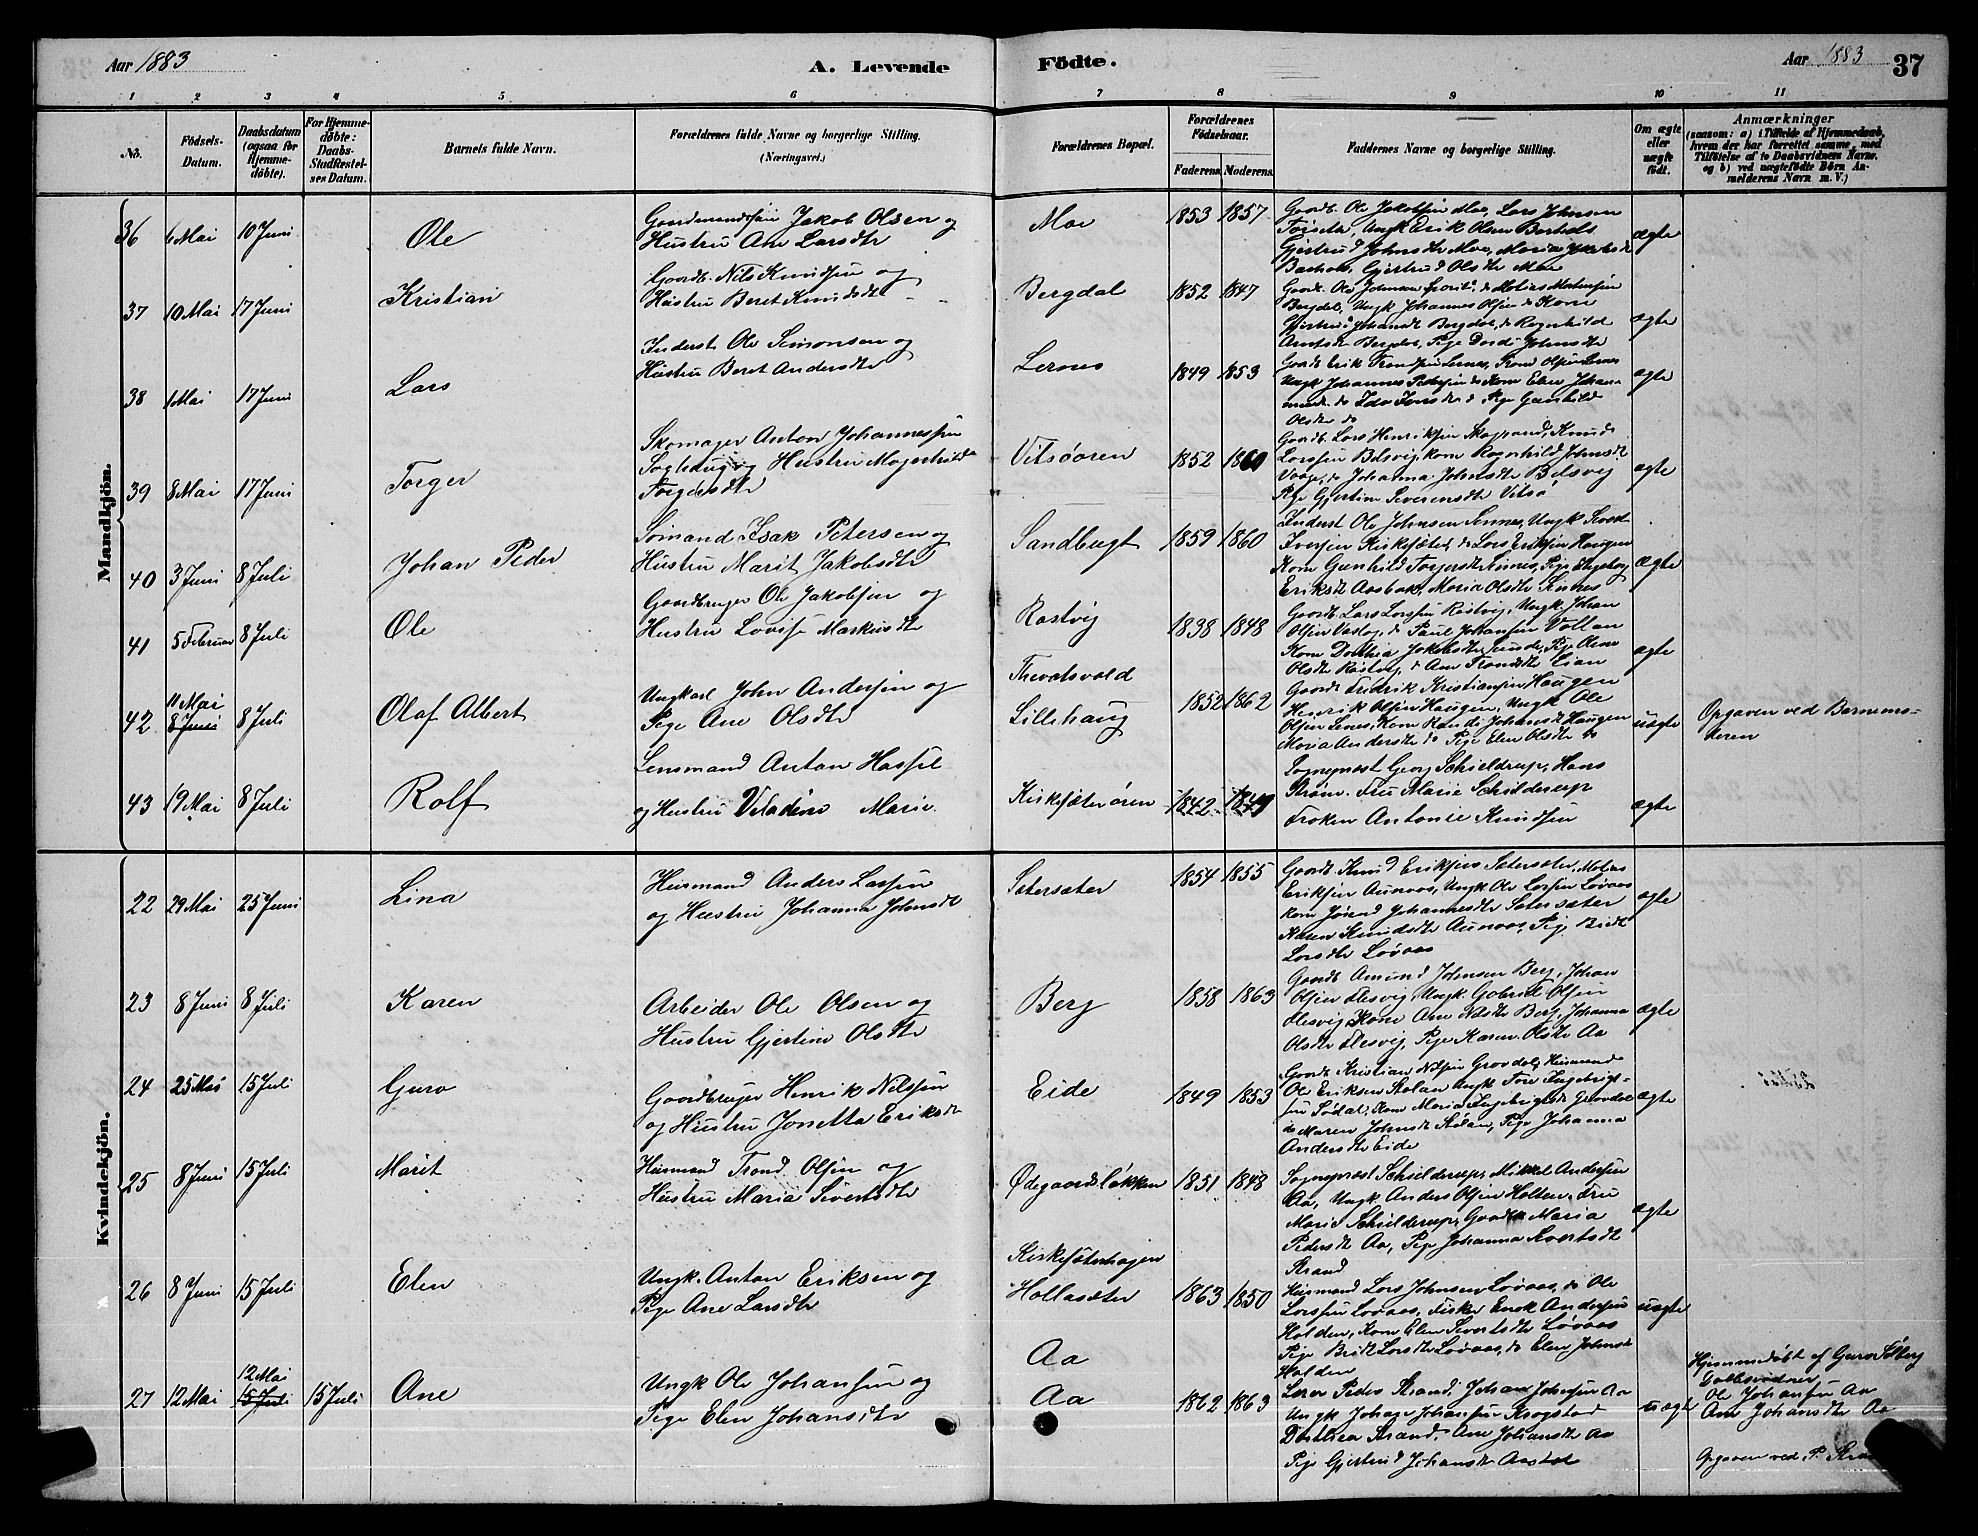 Aar 1883
A. Levende Födte.
Aar 1883
37
1 2 3 4 5 6 7 8 9 10 11
No.
Födsels-Datum.
Daabsdatum (ogsaa for Hjemme-döbte).
For Hjemme-döbte: Daabs-Stadfæstel-ses Datum.
Barnets fulde Navn.
Forældrenes fulde Navne og borgerlige Stilling. (Næringsvei.)
Forældrenes Bopæl.
Forældrenes Födselsaar.
Faderens Moderens
Faddernes Navne og borgerlige Stilling.
Om ægte eller uægte födt.
Anmærkninger
(saasom: a) i Tilfælde af Hjemmedaab, hvem der har forrettet samme, med Tilföielse af to Daabsvidners Navne, og b) ved uægtefödte Börn An-melderens Navn m. V.)
Mandkjön.
36 6 Mai 10 Juni Ole
Gaardmandssøn Jakob Olsen og
Hustru Ane Larsdtr
Moe 1853 1857
Gaardb. Ole Jakobsen Moe, Lars Johnsen
Ungk Erik Olsen
Gjertrud Johnsdtr Moe,
Gjertrud Olsdtr Moe
ægte
37 10 Mai 17 Juni Kristian
Gaardb. Nils Knudsen og
Hustru Beret Knudsdtr
Bergdal 1852 1847
Ungk Johannes Olsen
Bergdal, Pige Dordi Johnsdtr
ægte
38 1 Mai 17 Juni Lars
Inderst Ole Simonsen og
Hustru Beret Andersdtr
Lernes 1849 1853
Gaardb Erik Trondsen Lernes, Trond Olsen Lernes
Ungk Johannes Pedersen do Kone Elen
Pige Gunhild
Olsdtr do
ægte
39 8 Mai 17 Juni Torger
Skomager Anton Johannessen
og Hustru
Torgersdtr
Vitsøøren 1852 1860
Gaardb. Lars Henriksen Skogrand, Knud
Larssen Belsvig, Kone Ragnhild Johnsdt
Johanna Johnsdtr Belsvig
Pige Gjertine Severensdtr Vitsø
ægte
40 3 Juni 8 Juli Johan Peder
Sømand Isak Petersen og
Hustru Marit Jakobsdtr
Sandbugt 1859 1860
Inderst Ole Johnsen Sinnes, Ungk Sivert
Iversen Kirksæter, do Lars Eriksen Haugen
Kone Gunhild Torgersdtr Sinnes, Pige Ingeborg
Eriksdt Aasbak, Maria Olsdtr Sinnes
ægte
41 5 Februar 8 Juli Ole
Gaardbruger Ole Jakobsen og
Hustru Lovise Markusdtr
Rostvig 1838 1848
Gaardb. Lars Larssen Rostvig, Ungk. Johan
Olsen Vaslag, do Paul Johansen Vollan
Kone Dorthea Jakobsdtr Sunde, Pige Olene
Olsdtr Rostvig, do Ane Trondsdtr Lian
ægte
42 11 Mai 8 Juni 8 Juli Olaf Albert
Ungkarl John Andersen og
Pige Ane Olsdtr
Thevatsvold
Lillehaug 1852 1862
Gaardb Fredrik Kristiansen Haugen
Henrik Olsen Haugen, Ungk Ole
Olsen Lenes, Kone Randi Johansdt Haugen
Maria Andersdtr do Pige Elen Olsdtr do
uægte
Opgaven ved Barnemo-
deren
43 19 Mai 8 Juli Rolf
Lensmand Anton Hassel
og Hustru Marie
Kirksæterøren 1842 1849
Sogneprest Georg Schielderup, Hans
Strøm. Fru Marie Schielderup
Frøken Antonie Knudsen
ægte
Kvindekjön.
22 29 Mai 25 Juni Lina
Husmand Anders Larsen
og Hustru Johanna Johnsdt
Sætersæter 1854 1855
Gaardb Knud Eriksen Sætersæter, Mathias
Eriksen Aunaas, Ungk Ole Larsen Løvaas
Kone Jørend Johannesdtr Sætersæter
Karen Knudsdtr Aunaas, Pige Brit
Larsdtr Løvaas
ægte
23 8 Juni 8 Juli Karen
Arbeider Ole Olsen og
Hustru Gjertine Olsdtr
Berg 1858 1863
Gaardb Amund Johnsen Berg, Johan
Olsen Flesvig, Ungk. Gabriel Olsen
Flesvig, Kone Ane Nilsdtr Berg, Johanna
Olsdtr Flesvig, Pige Karen Olsdtr Aa
ægte
24 25 Mai 15 Juli Guro
Gaardbruger Henrik Nilssen
og Hustru Jonetta Eriksdt
Eide 1849 1853
Gaardb Kristian Nilsen Grovdal, Husmand
Ole Eriksen Stolan Ungk Tore Ingebrigt-
sen Sødal, Kone Maria Ingebrigtsdt Grovdal
do Maren Johnsdt Stolan, Pige Johanna
Andersdtr Eide
ægte
25 8 Juni 15 Juli Marit
Husmand Trond Olsen og
Hustru Maria Sivertsdtr
Ødegaardsløkken 1851 1848
Sogneprest Schielderup, Mikkel Andersen
Aa, Ungk. Anders Olsen Holten, Fru
Marie Schielderup, Gaardbk Maria
Pedersdt Aa, Pige Johanna Sivertsdt
Strand
ægte
26 8 Juni 15 Juli Elen
Ungk. Anton Eriksen og
Pige Ane Larsdtr
Kirksæterhagen
Hollasæter 1863 1850
Husmand Lars Johnsen Løvaas, do Ole
Larssen Løvaas, Fisker Enok Andersen
Holden, Kone Elen Sivertsdtr Løvaas
Pige Brit Larsdtr Løvaas, do Elen Johnsdt
Holden
uægte
27 12 Mai 12 Mai 15 Juli 15 Juli Ane
Ungk Ole Johansen og
Pige Elen Johansdtr
Aa
Aa 1862 1863
Lærer Peder Strand, Johan Johnsen Aa
Ungk Johan Johansen Krogstad
Dorthea Strand, Ane Johansdtr Aa
Pige Gjertrud Johansdt
uægte
Hjemmedøbt af Guro Solberg
Daabsvidner
Ole Johansen Aa
Ane Johansdtr Aa
Opgaven ved P. Stra